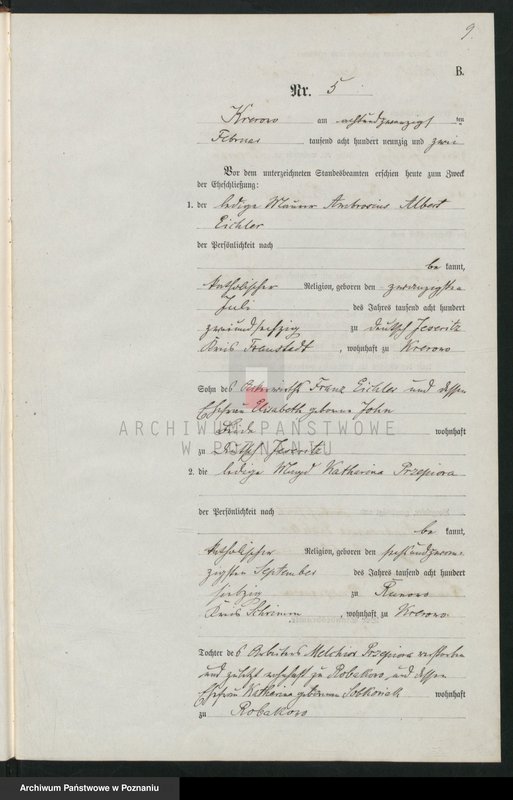 9.
B.
Nr. 5
Krerowo am achtundzwanzigsten
Februar tausend acht hundert neunzig und zwei
Vor dem unterzeichneten Standesbeamten erschien heute zum Zweck
der Eheschließung:
1. der ledige Maurer Ambrosius Albert
Eichler
der Persönlichkeit nach
be kannt,
katholischer Religion, geboren den zwanzigsten
Juli des Jahres tausend acht hundert
zweiundsechzig zu Deutsch Jeseritz
Kreis Fraustadt, wohnhaft zu Krerowo
Sohn des Ackerwirths Franz Eichler und dessen
Ehefrau Elisabeth geborene John
Beide wohnhaft
zu Deutsch Jeseritz
ARCHIWUM PAŃSTWOWE
W POZNANIU
2. die ledige Magd Katharina Przepiora
der Persönlichkeit nach
be kannt,
katholischer Religion, geboren den sechsundzwan-
zigsten September des Jahres tausend acht hundert
siebzig zu Runowo
Kreis Schrimm, wohnhaft zu Krerowo
Tochter des Arbeiters Melchior Przepiora verstorben
und zuletzt wohnhaft zu Robakowo und dessen
Ehefrau Katharina geborenen wohnhaft
zu Robakowo
Archiwum Państwowe w Poznaniu